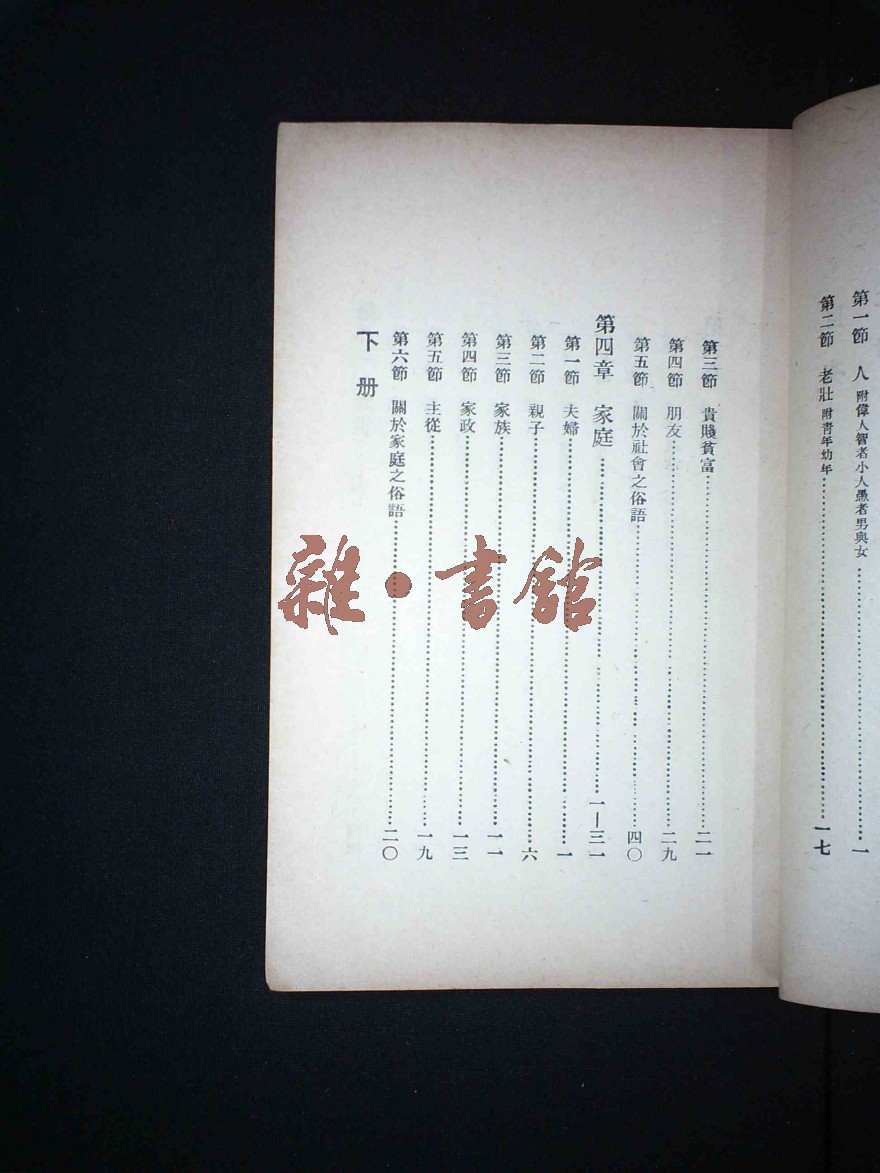 第一節 人 附偉人智者小人愚者男與女……一
第二節 老壯 附靑年幼年……一七
第三節 貴賤貧富……二一
第四節 朋友……二九
第五節 關於社會之俗語……四〇
第四章 家庭……一—三一
第一節 夫婦……一
第二節 親子……六
第三節 家族……一一
第四節 家政……一三
第五節 主從……一九
第六節 關於家庭之俗語……二〇
下册
雜·書館